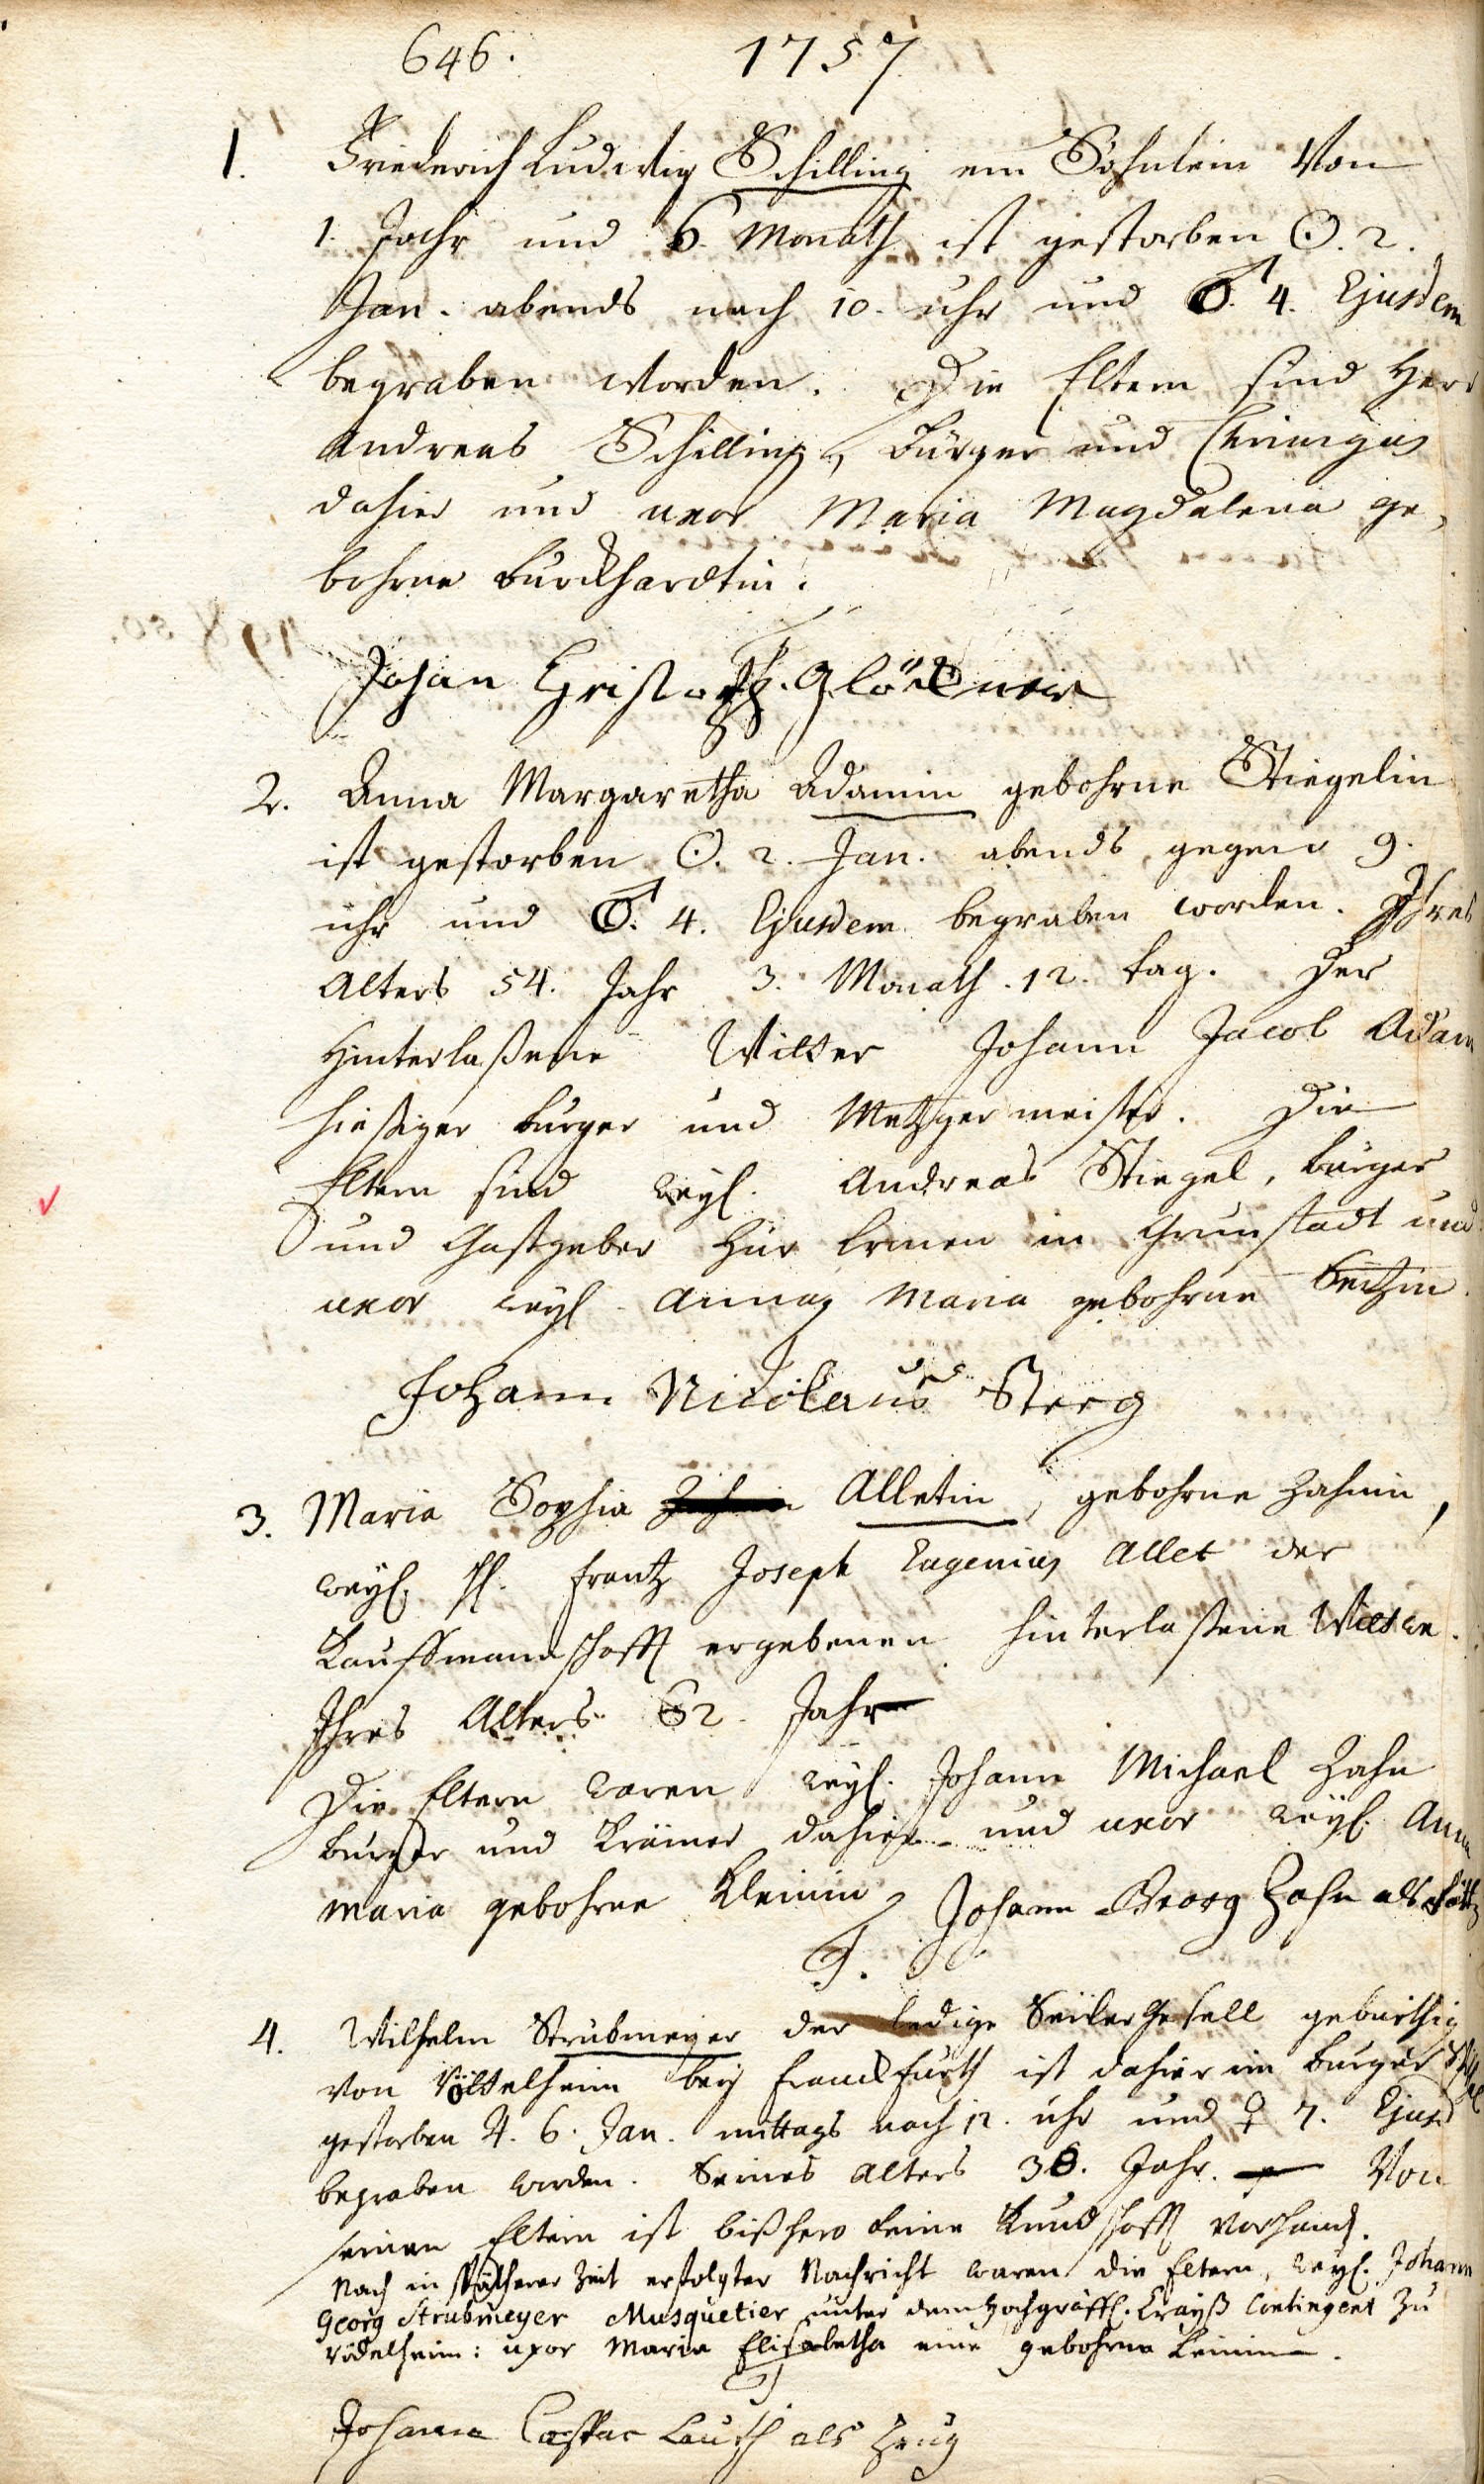 646. 1757
1. Friederich Ludwig Schilling ein Söhnlein Von
1. Jahr und 6. Monath ist gestorben ☉. 2.
Jan. abends nach 10. uhr und ♂. 4. Ejusdem
begraben worden. Die Eltern sind Herr
Andreas Schilling, Bürger und Chirurgus
dahier und uxor Maria Magdalena ge,
bohrne Burckhardtin.
Johan Christoph Glöckner
2. Anna Margaretha Adamin gebohrne Stiegelin
ist gestorben ☉. 2. Jan. abends gegen 9.
uhr und ♂. 4. Ejusdem begraben worden. Ihres
Alters 54. Jahr 3. Monath. 12. tag. Der
Hinterlaßene Witter Johann Jacob Adam
hiesiger burger und Metzgermeister. Die
Eltern sind weyl. Andreas Stiegel, burger
und Gastgeber zur in Grünstadt und
uxor weyl. Anna Maria gebohrne
Johann Nicolaus Steeg
3. Maria Sophia Alletin, gebohrne Zahnin,
weyl. H. Frantz Joseph Eugenius Allet der
Kauffmannschafft ergebenen hinterlaßene Wittwe.
Ihres Alters 62. Jahr
Die Eltern waren weyl. Johann Michael Zahn
burger und Krämer dahier und uxor weyl. Anna
Maria gebohrne Kleinin, Johann Georg Zahn als
4. Wilhelm Strubmeyer der ledige Seiler Gesell gebürthig
von Röttelheim bey Franckfurth ist dahier im burger Spithal
gestorben ♃. 6. Jan. mittags nach 12. uhr und ♀ 7. Ejusd
begraben worden. Seines Alters 38. Jahr. Von
seinen Eltern ist bißhero keine Kundschafft vorhand.
Nach in spätherer Zeit erfolgter Nachricht waren die Eltern, weyl. Johann
Georg Strubmeyer Musquetier unter dem Hochgräffl. Crayß Contingent zu
Rödelheim: uxor Maria Elisabetha eine gebohrne
Johann Caspar Lauth als Zeug